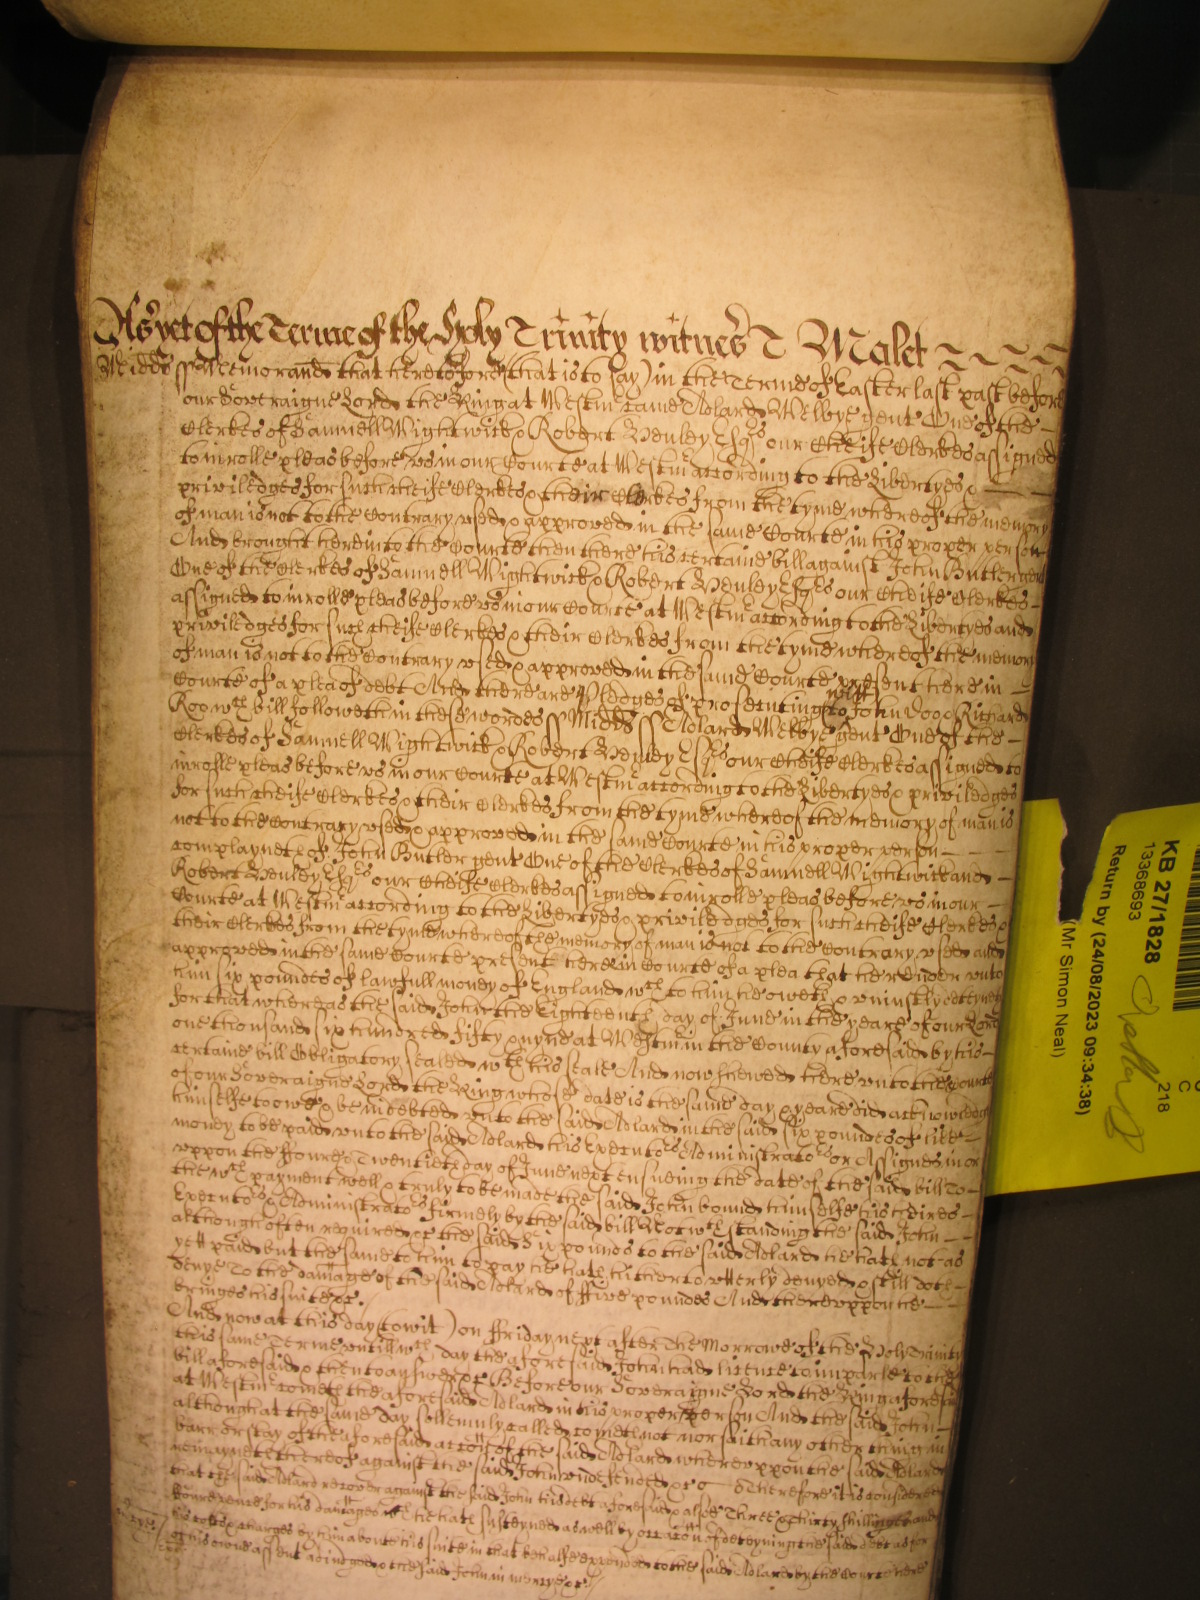 As yet of the Terme of the Holy Trinity witnes T Malet
Midds ss Memorand that heretofore (that is to say) in the Terme of Easter last past before
our Soveraigne Lord the King at Westm came Adlard Welbye gent One of the
Clerkes of Samuell Wightwick & Robert Henley Esqrs our Cheife Clerkes assigned
to inrolle pleas before us in our Courte at Westm according to the Libertyes &
priviledges for such cheife Clerkes & their Clerkes from the tyme whereof the memory
of man is not to the Contrary used & approved in the same Courte in his proper person
And brought here into the Courte then there his certaine bill against John Butler gent
One of the Clerkes of Samuell Wightwick & Robert Henley Esqrs our Cheife Clerkes
assigned to inrolle pleas before us in our Courte at Westm according to the Libertyes and
priviledges for such cheife Clerkes & their Clerkes from the tyme whereof the memory
of man is not to the Contrary used & approved in the same Courte present here in
Courte of a plea of debt And there are Pledges of prosecuting to witt John Doo & Richard
Roo wch bill followeth in these wordes ss Midds ss Adlard Welbye gent One of the
Clerkes of Samuell Wightwick & Robert Henley Esqrs our Cheife Clerkes assigned to
inrolle pleas before us in our Courte at Westm according to the Libertyes & priviledges
for such cheife Clerkes & their Clerkes from the tyme whereof the memory of man is
not to the Contrary used & approved in the same Courte in his proper person
complayneth of John Butler gent One of the Clerkes of Samuell Wightwick and
Robert Henley Esqrs our Cheife Clerkes assigned to inrolle pleas before us in our
Courte at Westm according to the Libertyes & priviledges for such cheife Clerkes &
their Clerkes from the tyme whereof the memory of man is not to the Contrary used and
approved in the same Courte present here in Courte of a plea that he render unto
him six poundes of lawfull money of England wch to him he oweth & uniustly deteyneth
for that whereas the said John the Eighteenth day of June in the yeare of our Lord
one thousand six hundred fifty & nyne at Westm in the County aforesaid by his
certaine bill Obligatory sealed wth his seale And now shewed here unto the Courte
of our Soveraigne Lord the King whose date is the same day & yeare did acknowledge
himselfe to owe & be indebted unto the said Adlard in the said six poundes of like
money to be paid unto the said Adlard his Executors Administrators or Assignes in or
uppon the Foure & Twentieth day of June next ensueing the date of the said bill To
the wch payment well & truly to be made the said John bound himselfe his heires
Executors & Administrators firmely by the said bill Notwthstanding the said John
although often required &c the said Six pounds to the said Adlard he hath not as
yett paid but the same to him to pay he hath hitherto utterly denyed & still doth
denye To the damage of the said Adlard of Five poundes And thereuppon he
bringes his suite &c.
And now at this day (to wit) on Friday next after The Morrowe of the Holy Trinity
this same Terme untill wch day the aforesaid John had licence to imparle to the
bill aforesaid & then to answer &c Before our Soveraigne Lord the King aforesaid
at Westm cometh the aforesaid Adlard in his proper person And the said John
although at the same day sollemnly called cometh not nor saith any other thing in
barr or stay of the aforesaid accon of the said Adlard whereuppon the said Adlard
remayneth thereof against the said John undefended &c Therefore it is considered
that the said Adlard recover against the said John his debt aforesaid & alsoe Three & thirty shillinges and
foure pence for his damages wch he hath susteyned as well by occasion of deteyning the said debt as for
his costes & charges by him about his suite in that behalfe expended to the said Adlard by the Courte here
of his owne assent adiudged & the said John in mercye &c
KB 27/1828
13368693
Return by (24/08/2023 09:34:38)
(Mr Simon Neal)
C
218